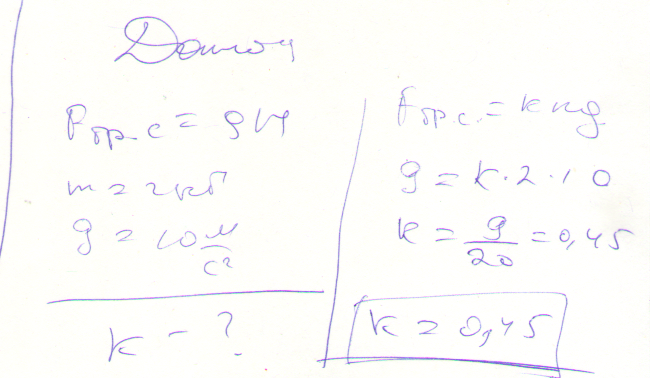 Fтр.с = 9Н
m = 2кг
g = 10 м/с²
k - ?
Fтр.с. = k mg
9 = k·2·10
k = 9/20 = 0,45
k = 0,45